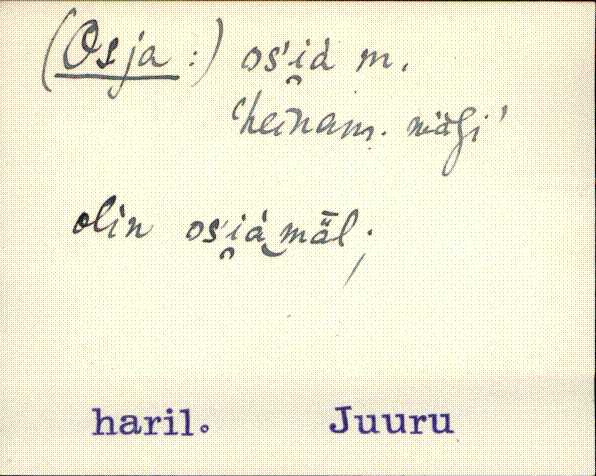 (Osja :) os'i̯à m.
'heinam. mägi'
olin os'i̯à‿mäl;
haril. Juuru